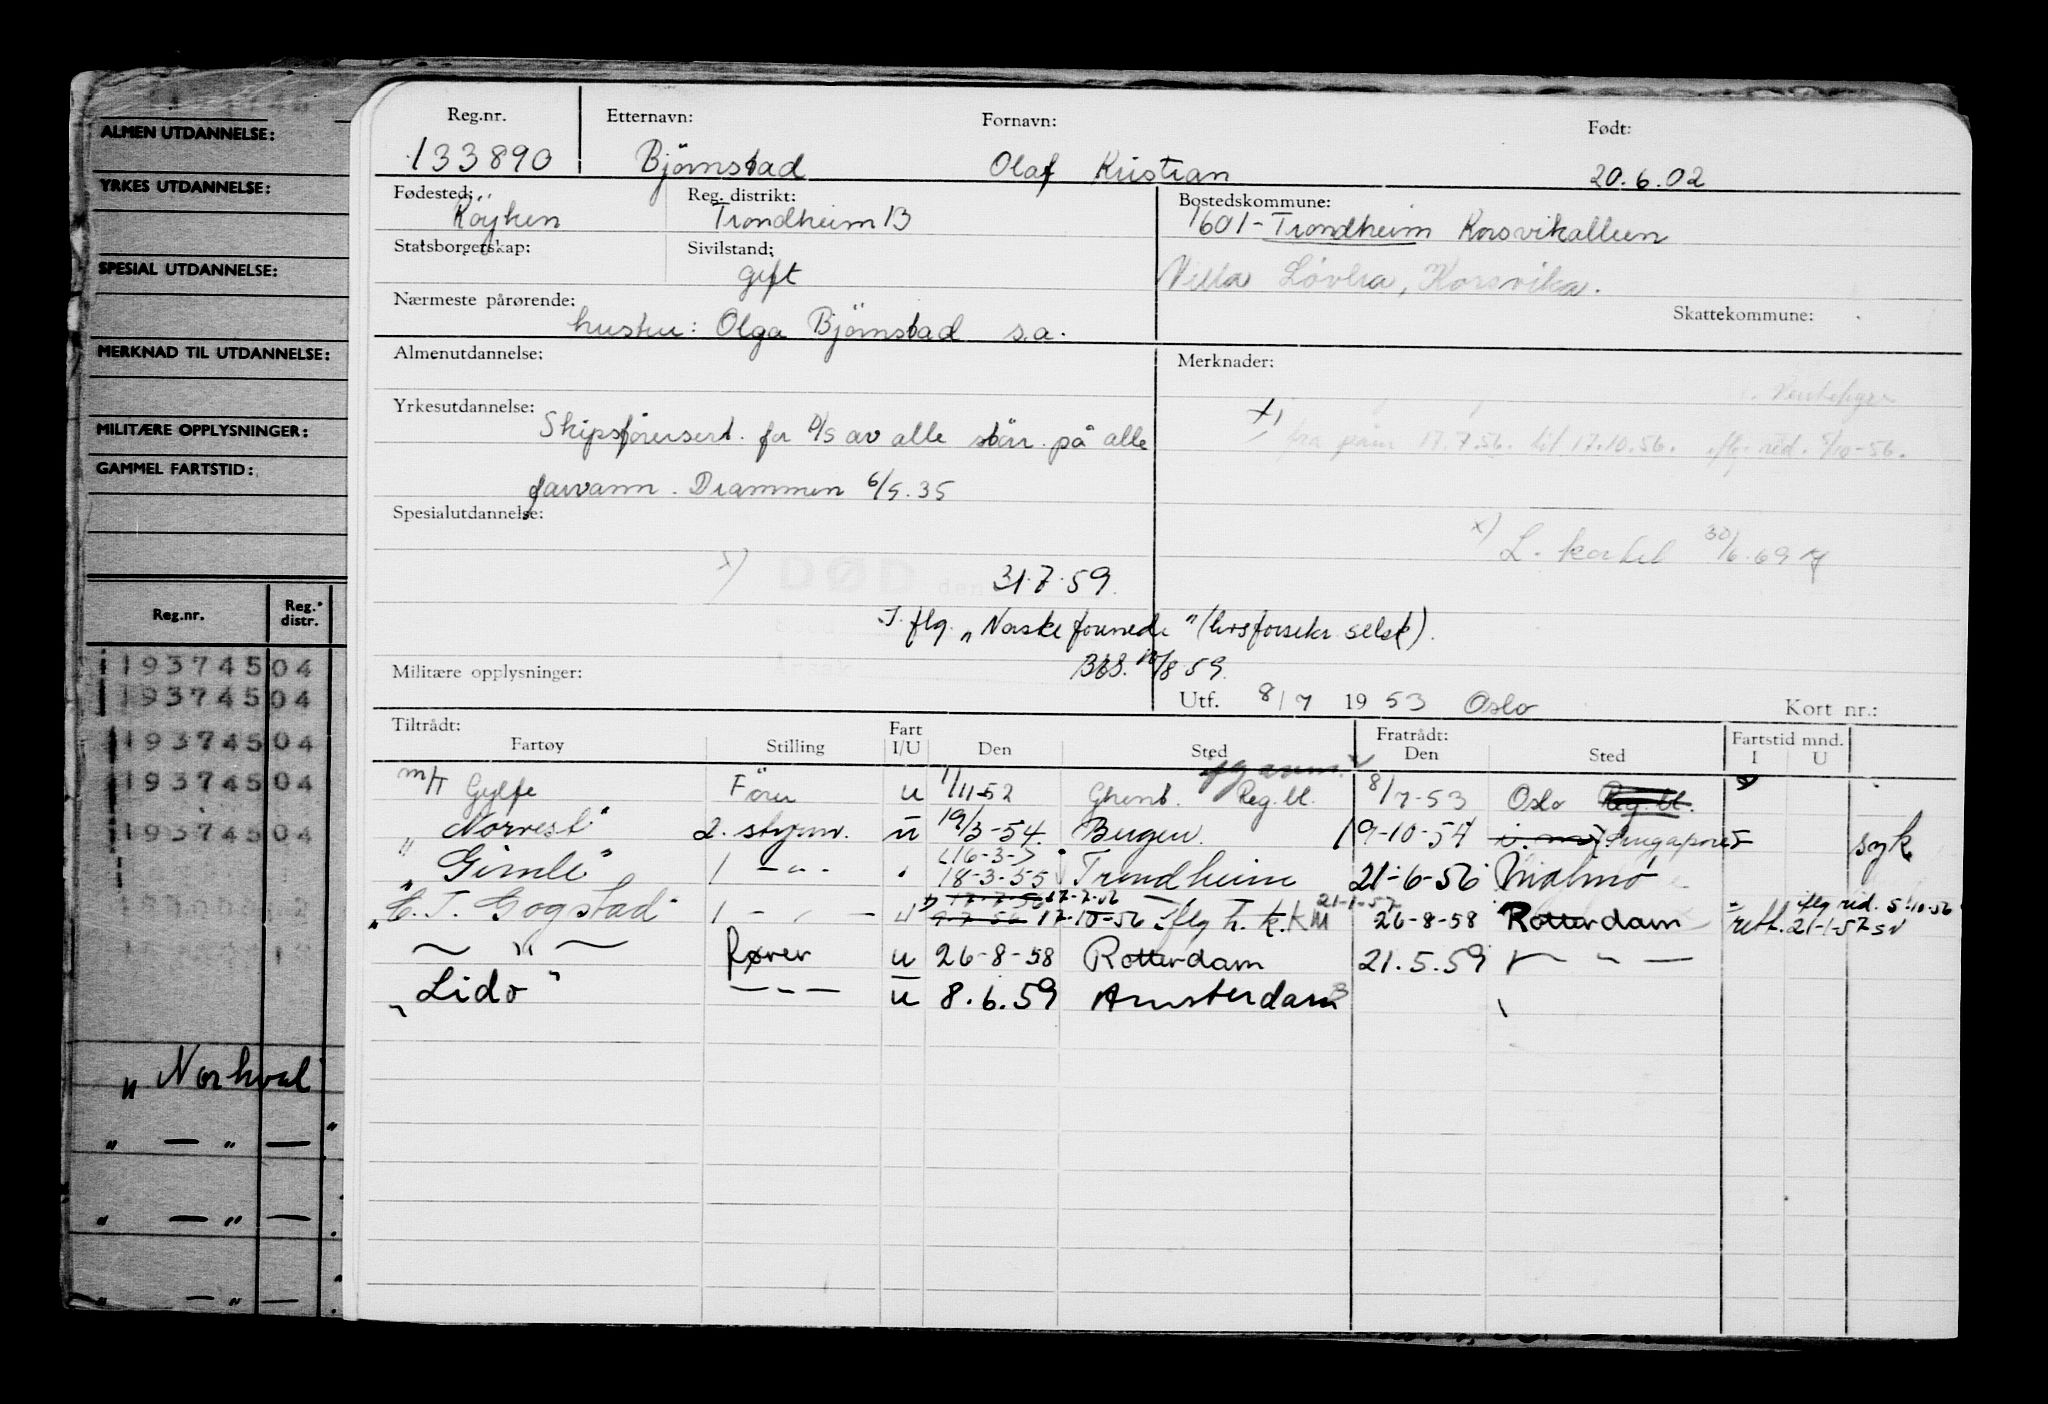 ALMEN UTDANNELSE:
YRKES UTDANNELSE:
SPESIAL UTDANNELSE:
MERKNAD TIL UTDANNELSE:
MILITÆRE OPPLYSNINGER:
GAMMEL FARTSTID:
Reg.nr. Reg. distr.
19374504
19374504
19374504
19374504
19374504
„ Norhval "
„ — „ — "
„ — „ —
„ — „ —
Reg.nr. Etternavn: Fornavn: Født:
133890 Björnstad Olaf Kristian 20.6.02
Fødested: Reg. distrikt: Bostedskommune:
Röyken Trondheim B 1601-Trondheim Korsvikalleen
Statsborgerskap: Sivilstand:
gift Villa Lövlia, Korsvika.
Nærmeste pårørende: Skattekommune:
hustru: Olga Björnstad s.a.
Almenutdannelse: Merknader:
Yrkesutdannelse:
Skipsförersert. for D/S av alle störr. på alle
x) fra 17.7.56. til 17.10.56. iflg. red. 5/10-56.
farvann. Drammen 6/5.35
Spesialutdannelse:
x) L. kartel 30/6.69
x) DØD den 31.7.59.
I. flg. „Norske forenede" (livsforsikr. selsk).
/8 59.
Militære opplysninger:
Utf. 8/7 1953 Oslo Kort nr.:
Tiltrådt: Fart Fratrådt: Fartstid mnd.
Fartøy Stilling I/U Den Sted Den Sted I U
M/T Gylfe Förer u 1/11-52 Ghent. Reg.bl. 8/7-53 Oslo Reg.bl.
„ Norvest" 2. styrm. u 19/3-54. Bergen. 19-10-54 Singapore syk
16-3-
„ Gimle" 1 — „ — " 18-3-55 Trondheim 21-6-56 Malmö
17-7-56 21-1-57 iflg red. 5-10-56
„ C. T. Gogstad" 1 — „ — u 9-7-56 17-10-56 iflg h. k. KM 26-8-58 Rotterdam rett. 21-1-57
— " — Fører u 26-8-58 Rotterdam 21.5.59 — „ —
„ Lido" — „ — u 8.6.59 Amsterdam